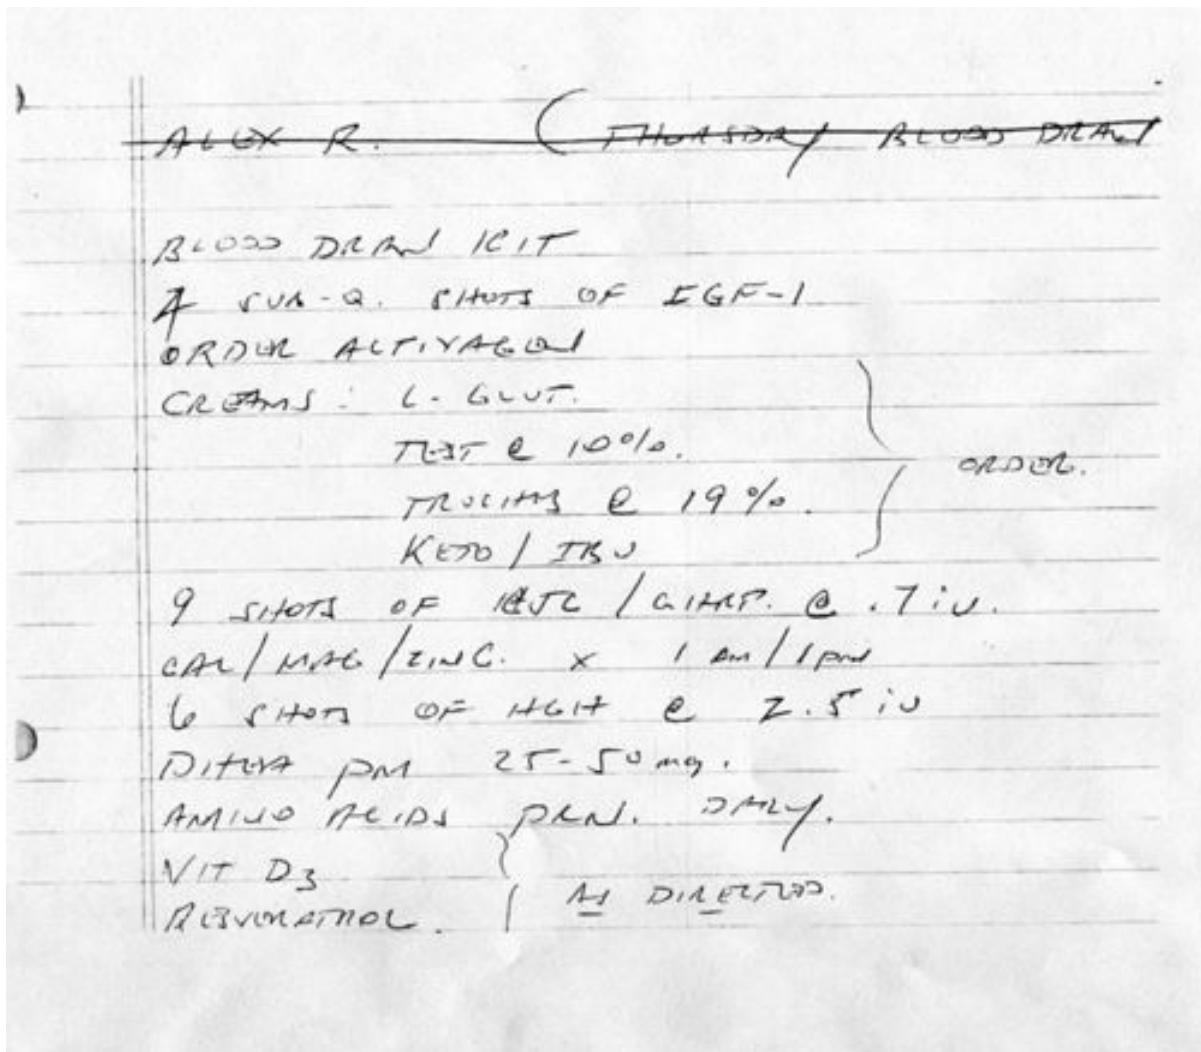 ALEX R. (THURSDAY BLOOD DRAW
BLOOD DRAW KIT
4 SUB-Q. SHOTS OF IGF-1
ORDER ACTIVAGEN
CREAMS: L-GLUT.
TEST @ 10%.
TROCHES @ 19%.
ORDER.
KETO / IBU
9 SHOTS OF CJC / GHRP. @ .7 iu.
CAL/MAG/ZINC. x 1 am/1pm
6 SHOTS OF HGH @ 2.5 iu
DHEA pm 25-50 mg.
AMINO ACIDS PRN. DAILY.
VIT D3
AS DIRECTED.
RESVERATROL.